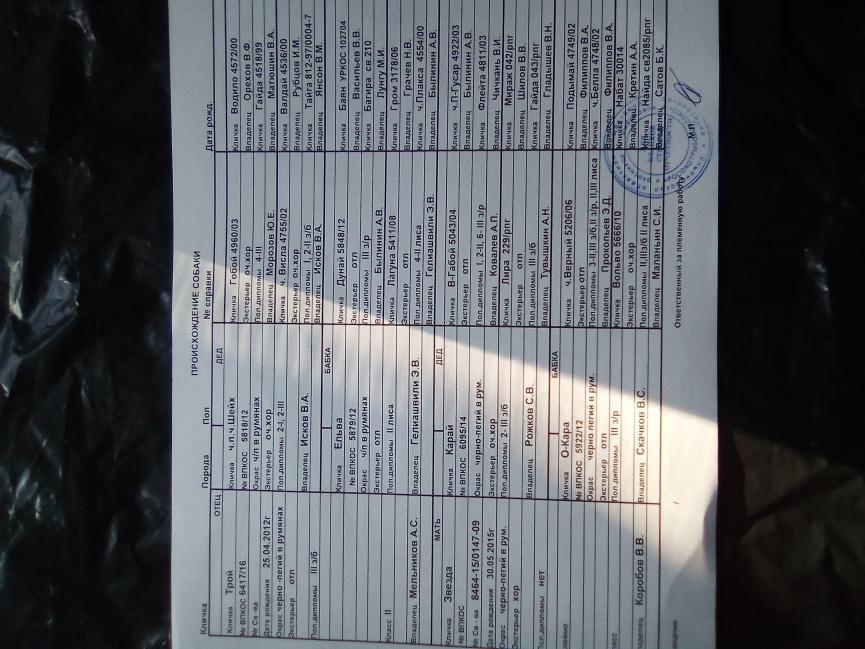 ПРОИСХОЖДЕНИЕ СОБАКИ
Кличка Порода Пол № справки Дата рожд
ОТЕЦ
Кличка Трой
№ ВПКОС 6417/16
№ Св -ва
Дата рождения 25.04.2012г
Окрас черно -пегий в румянах
Экстерьер отл
Пол.дипломы III з/б
Класс II
Владелец Мельников А.С.
МАТЬ
Кличка Звезда
№ ВПКОС
№ Св - ва 8464-15/0147-09
Дата рождения 30.05.2015г
Окрас черно-пегий в рум.
Экстерьер хор
Пол.дипломы нет
Владелец Коробов В.В.
ДЕД
Кличка ч.п.ч.Шейх
№ ВПКОС 5818/12
Окрас ч/п в румянах
Экстерьер оч.хор
Пол.дипломы 2-I, 2-III
Владелец Исков В.А.
БАБКА
Кличка Ельва
№ ВПКОС 5879/12
Окрас ч/п в румянах
Экстерьер отл
Пол.дипломы II лиса
Владелец Гелиашвили Э.В.
ДЕД
Кличка Карай
№ ВПКОС 6095/14
Окрас черно-пегий в рум.
Экстерьер оч.хор
Пол.дипломы 2- III з/б
Владелец Рожков С.В.
БАБКА
Кличка О-Кара
№ ВПКОС 5922/12
Окрас черно пегий в рум.
Экстерьер отл
Пол.дипломы III з/р
Владелец Скачков В.С.
Кличка Гобой 4960/03
Экстерьер оч.хор
Пол.дипломы 4-III
Владелец Морозов Ю.Е.
Кличка ч. Висла 4755/02
Экстерьер оч.хор
Пол.дипломы I, 2-II з/б
Владелец Исков В.А.
Кличка Дунай 5848/12
Экстерьер отл
Пол.дипломы III з/р
Владелец Былинин А.В.
Кличка Лагуна 5411/08
Экстерьер отл
Пол.дипломы 4-II лиса
Владелец Гелиашвили Э.В.
Кличка В-Габой 5043/04
Экстерьер отл
Пол.дипломы I, 2-II, 6- III з/р
Владелец Ковалев А.П.
Кличка Лира 229/рпг
Экстерьер отл
Пол.дипломы III з/б
Владелец Гувышкин А.Н.
Кличка ч.Верный 5206/06
Экстерьер отл
Пол.дипломы 3-II,III з/б,II з/р, II,III лиса
Владелец Прокопьев Э.Д.
Кличка Вольво 5866/10
Экстерьер оч.хор
Владелец Маланьин С.И.
Кличка Водило 4572/00
Владелец Орехов В.Ф.
Кличка Гайда 4518/99
Владелец Матюшин В.А.
Кличка Валдай 4536/00
Владелец Рубцов И.М.
Кличка Тайга 812-97/0004-7
Владелец Янсон В.М.
Кличка Баян УРКОС 102704
Владелец Васильев В.В.
Кличка Багира св.210
Владелец Лунгу М.И.
Кличка Гром 3178/06
Владелец Грачев Н.В.
Кличка ч.Плакса 4554/00
Владелец Былинин А.В.
Кличка ч.П-Гусар 4922/03
Владелец Былинин А.В.
Кличка Флейта 4811/03
Владелец Чичкань В.И.
Кличка Мираж 042/рпг
Владелец Шипов В.В.
Кличка Гайда 043/рпг
Владелец Гладышев В.Н.
Кличка Подымай 4749/02
Владелец Филиппов В.А.
Кличка ч.Белла 4748/02
Владелец Филиппов В.А.
Кличка Набат 30014
Владелец Кретин А.А.
Кличка Найда св2085/рпг
Владелец Сатов Б.К.
Ответственный за племенную работу
МП